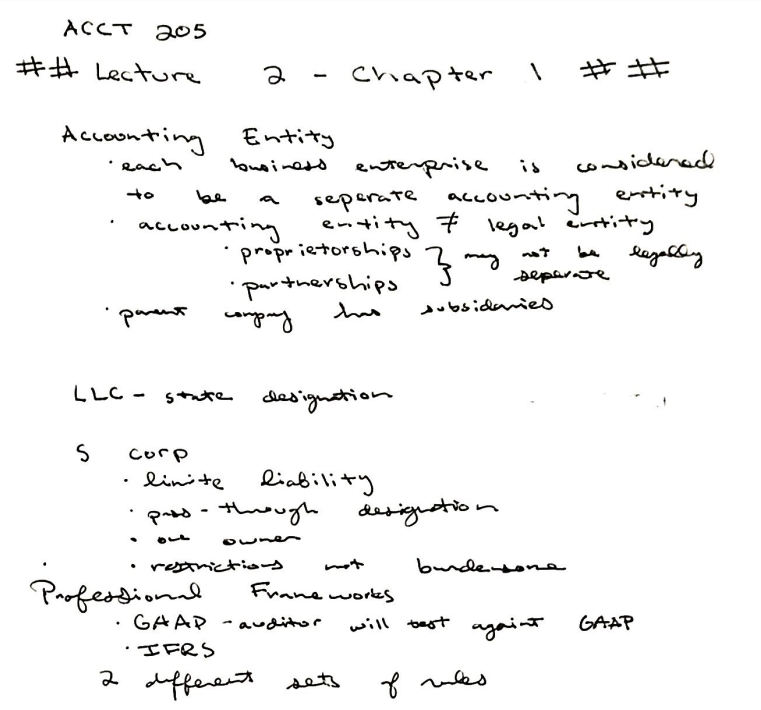 ACCT 205
## Lecture 2 - Chapter 1 ##
Accounting Entity
· each business enterprise is considered
to be a seperate accounting entity
· accounting entity ≠ legal entity
· proprietorships } may not be legally
· partnerships } seperate
· parent company has subsidaries
LLC - state designation
S corp
· limite liability
· pass-through designation
· owner
· restrictions not burdensome
Professional Frameworks
· GAAP - auditor will test against GAAP
· IFRS
2 different sets of rules